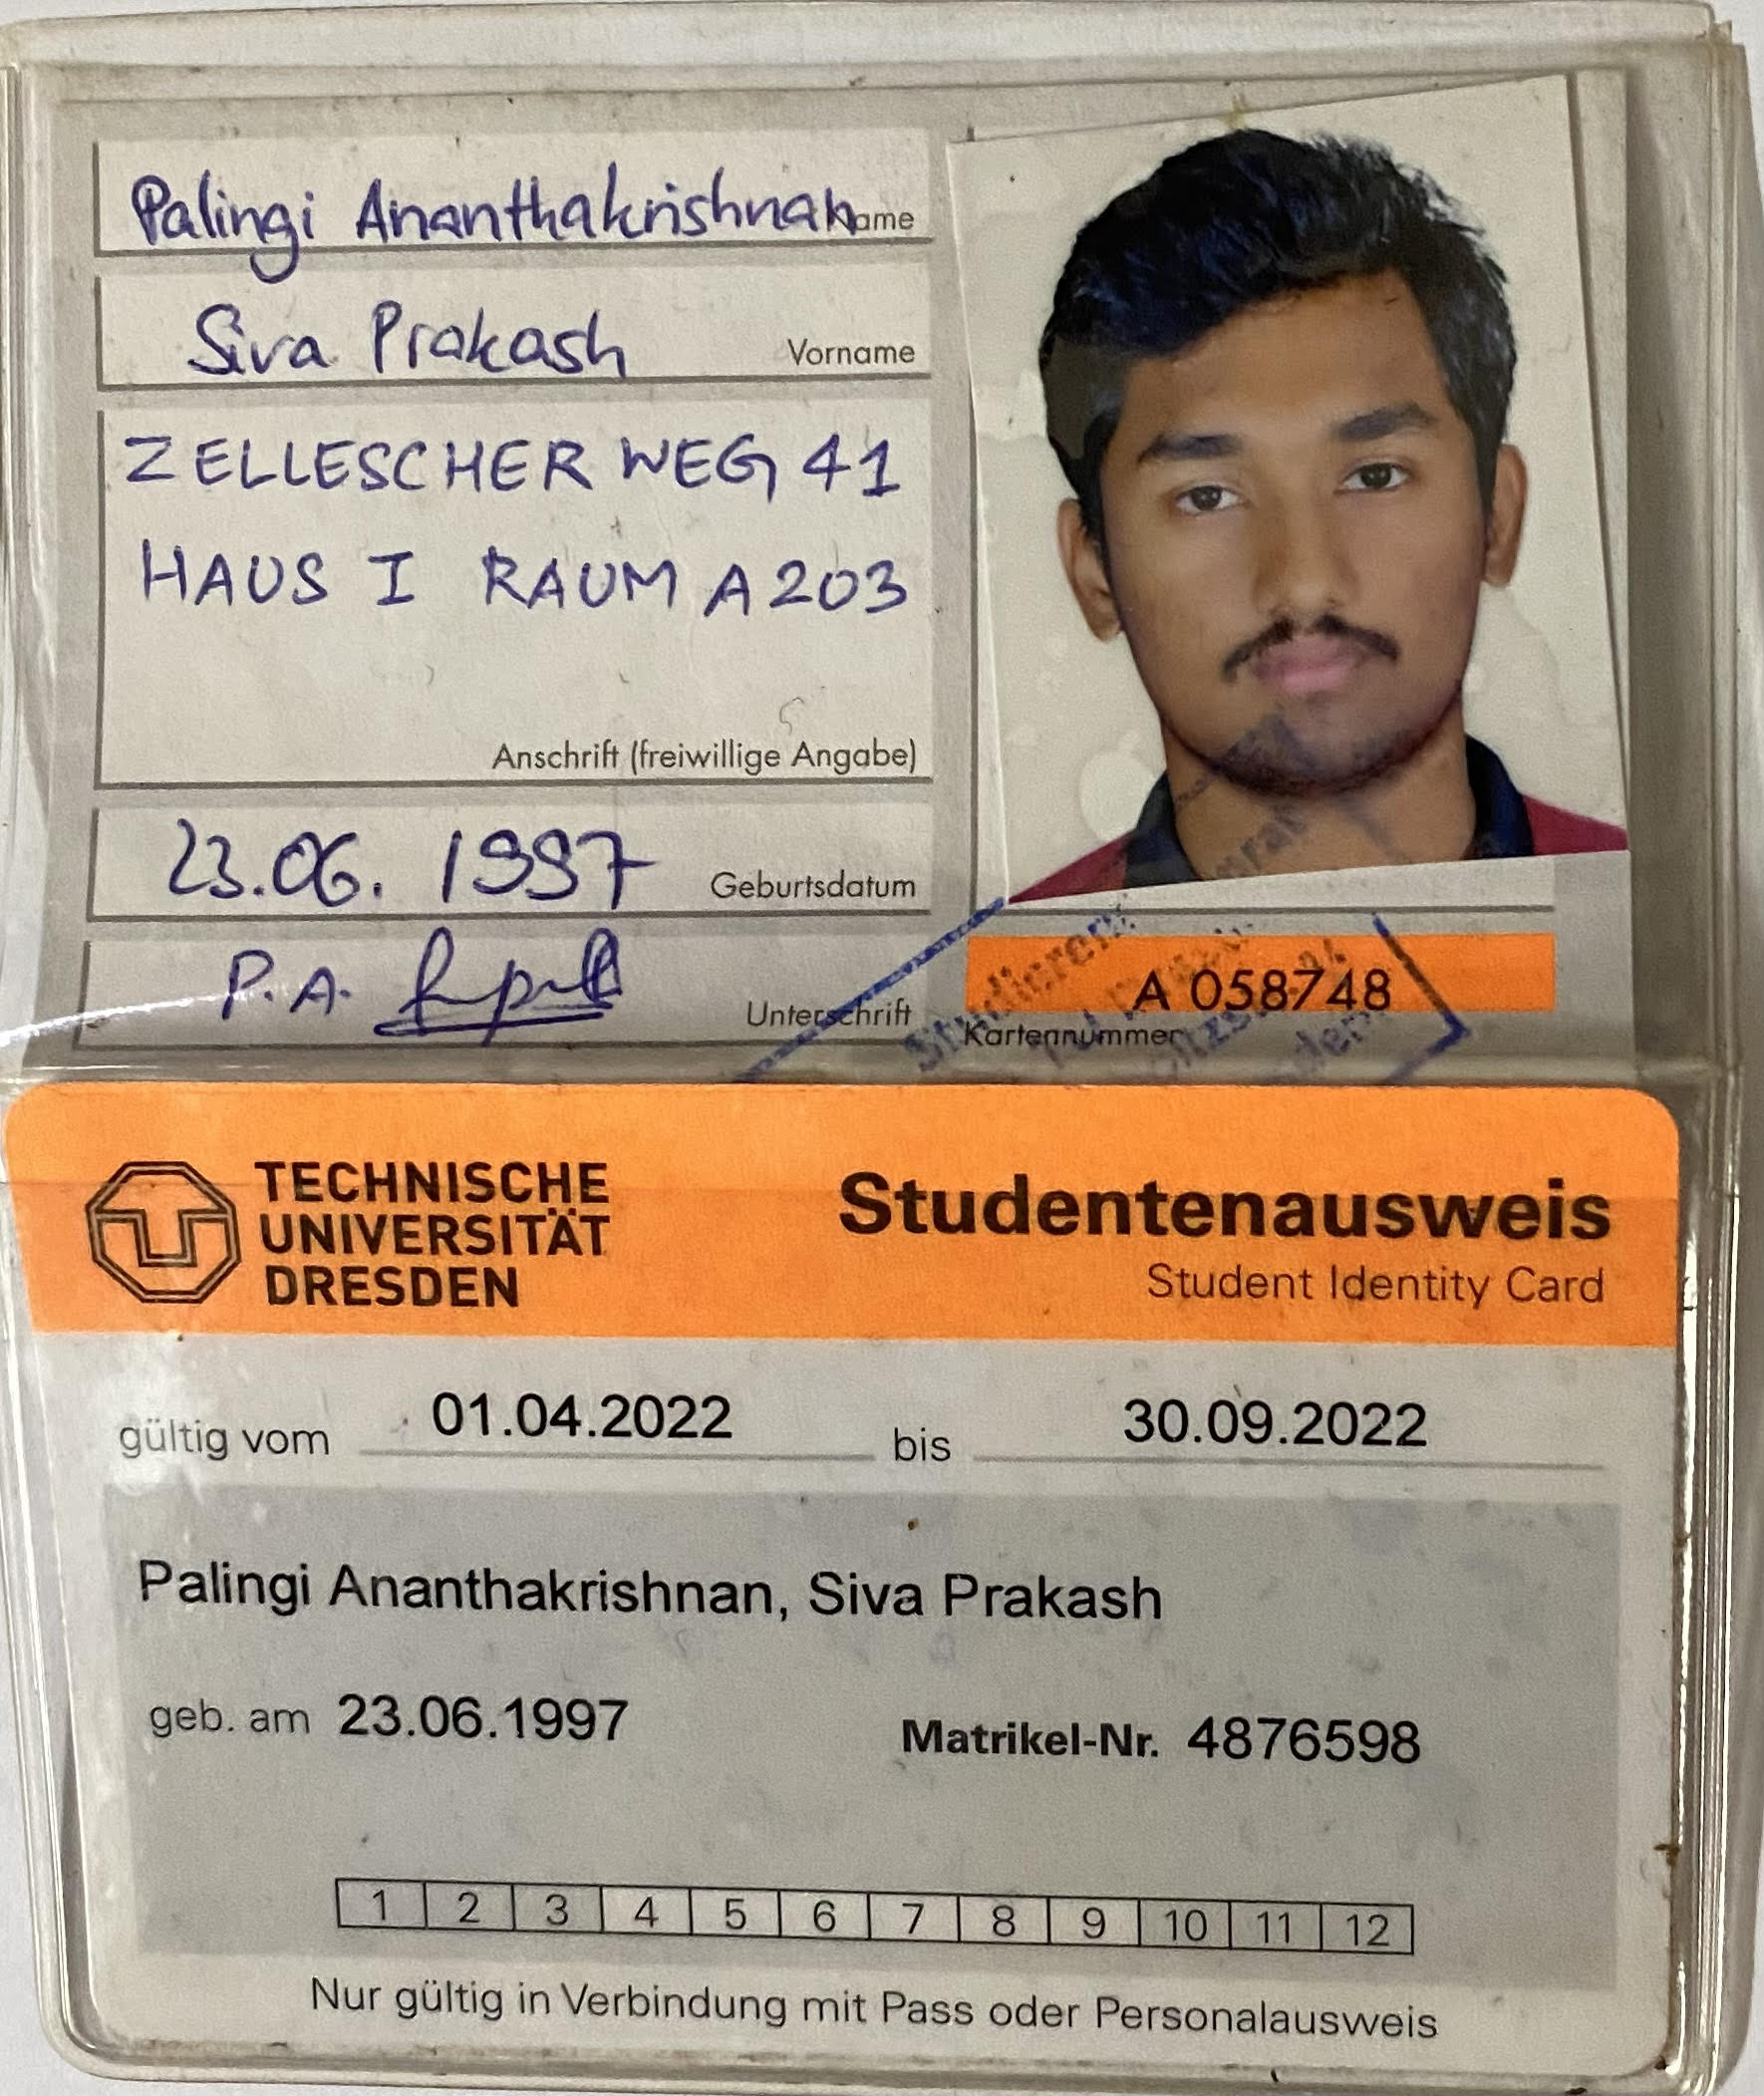 Palingi Ananthakrishnan Name
Siva Prakash Vorname
ZELLESCHER WEG 41
HAUS I RAUM A203
Anschrift (freiwillige Angabe)
23.06.1997 Geburtsdatum
P.A. Unterschrift
A 058748
Kartennummer
TECHNISCHE
UNIVERSITÄT
DRESDEN
Studentenausweis
Student Identity Card
gültig vom 01.04.2022 bis 30.09.2022
Palingi Ananthakrishnan, Siva Prakash
geb. am 23.06.1997 Matrikel-Nr. 4876598
1 2 3 4 5 6 7 8 9 10 11 12
Nur gültig in Verbindung mit Pass oder Personalausweis